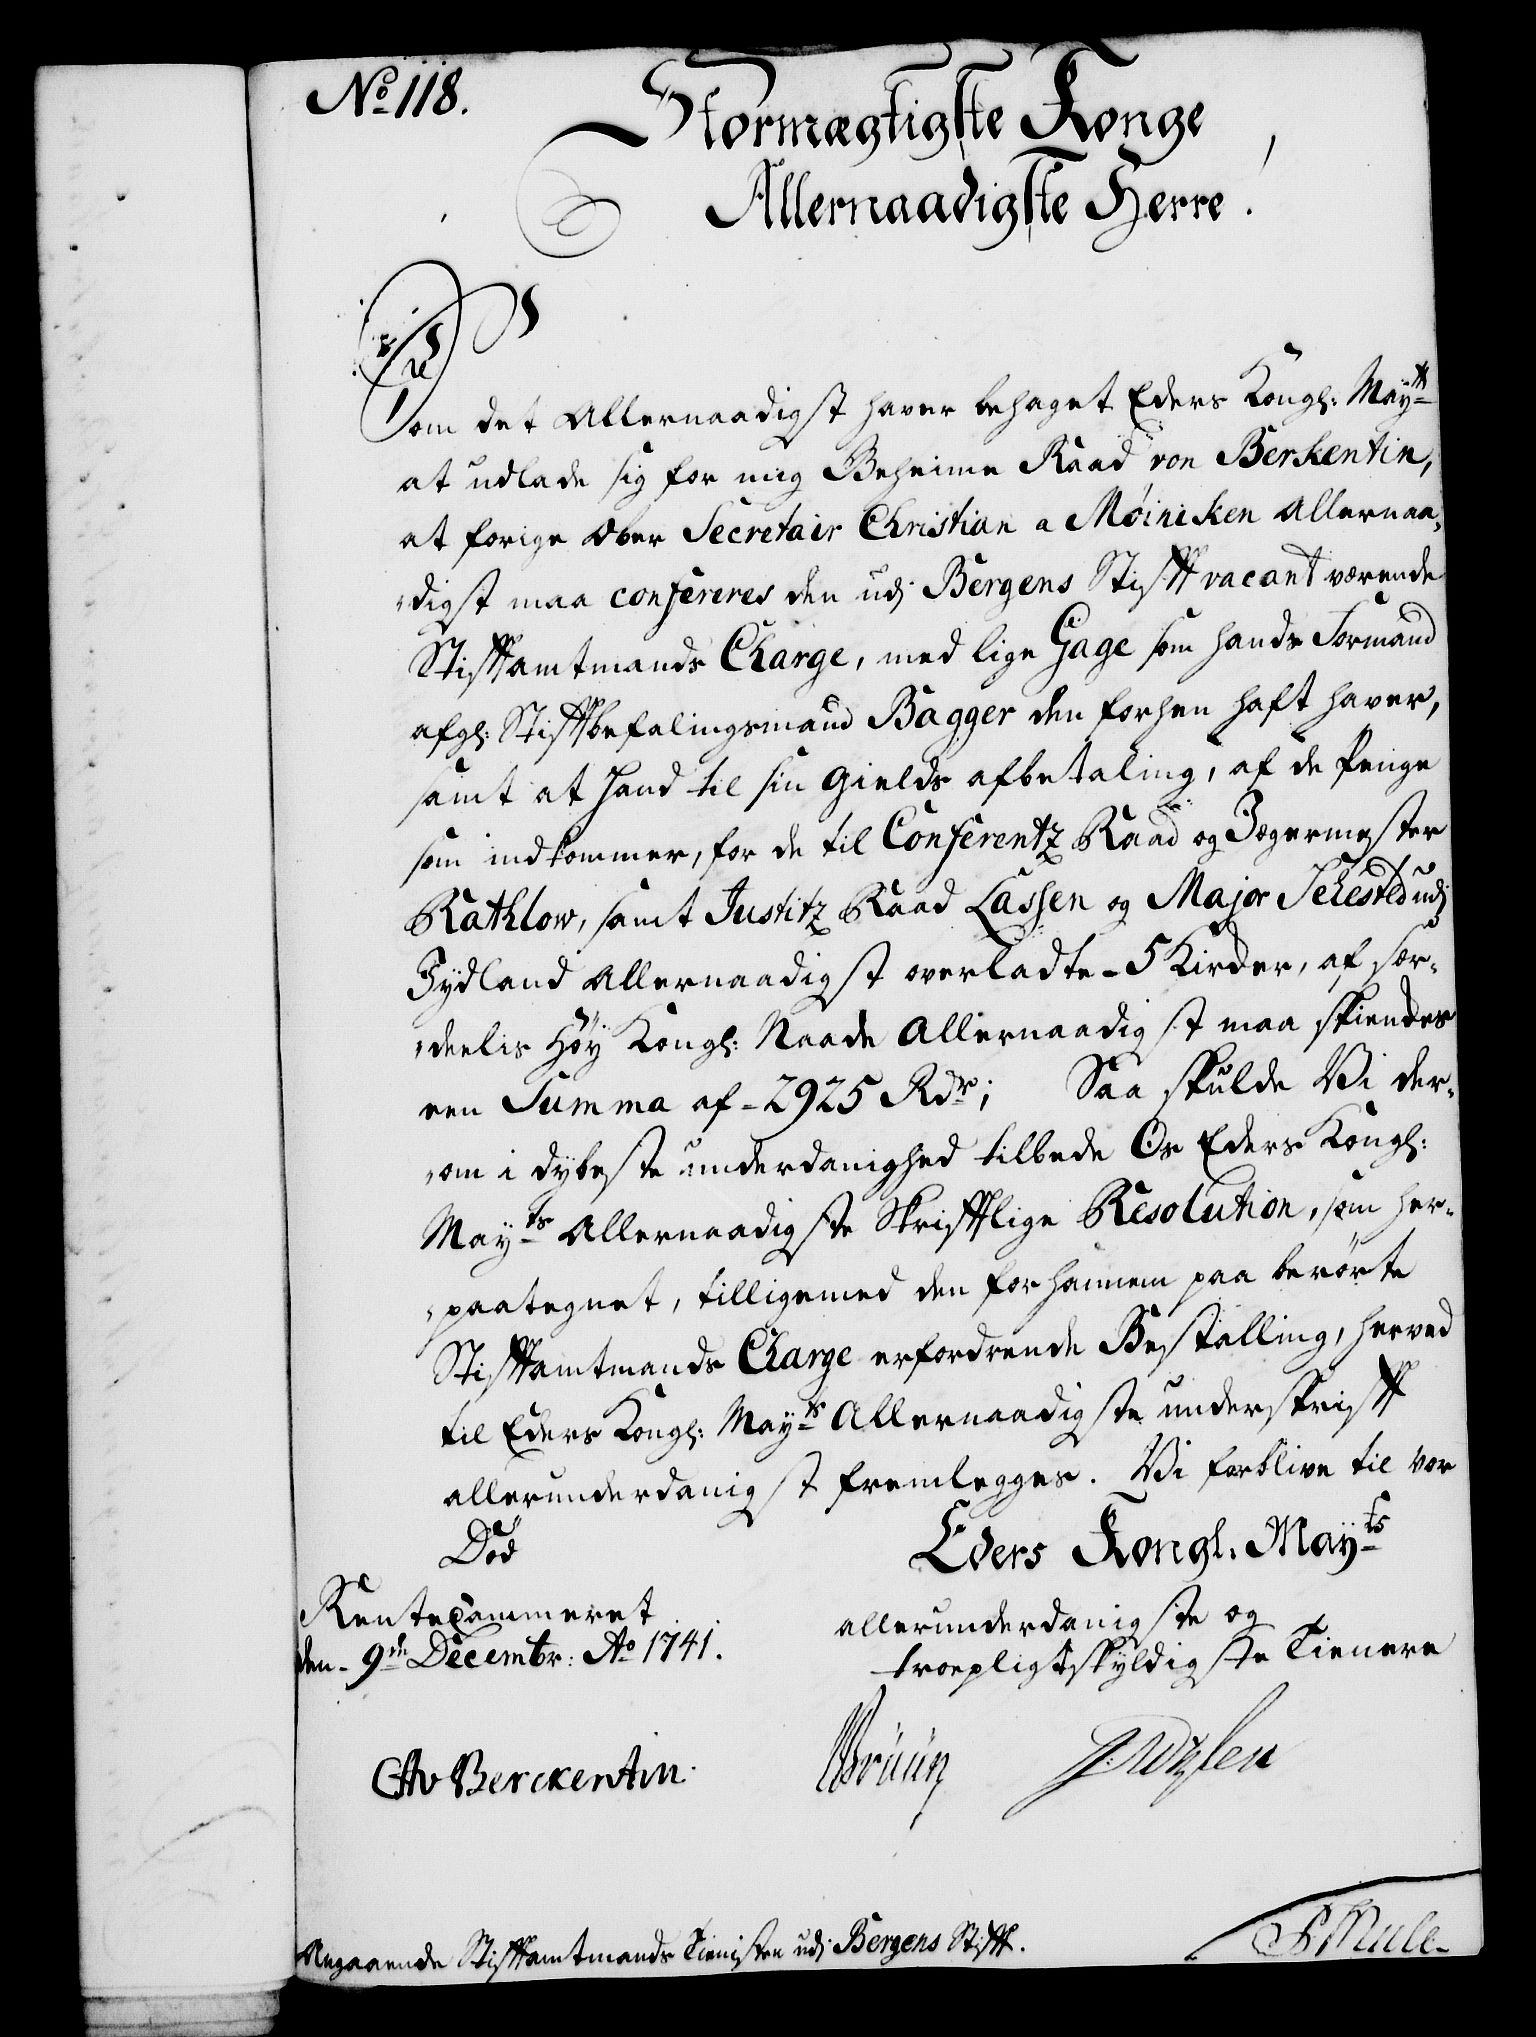 No 118.
Stormægtigste Konge
Allernaadigste Herre!
Som det Allernaadigst haver behaget Eders Kongl: Mayts
at udlade sig for mig Geheime Raad von Berkentin,
at forige Ober Secretair Christian a Møiniken Allernaa-
digst maa confereres den udj Bergens Stifft vacant værende
Stifftamtmands Charge, med lige Gage som hands Formand
afgl: Stifftbefalingsmand Bagger den forhen haft haver,
samt at hand til sin Gields afbetaling, af de Penge
som indkommer, for de til Conferentz Raad og Jægermester
Rathlow, samt Justitz Raad Lassen og Major Sehested udj
Jydland Allernaadigst overladte 5 Kirker, af sær-
deelis Høy Kongl: Naade Allernaadigst maa skienckes
een Summa af 2925 Rdr; Saa skulde Vi der-
om i dybeste underdanighed tilbede Os Eders Kongl:
Mayts Allernaadigste Skrifftlige Resolution, som her-
paategnet, tilligemed den for hannem paa berørte
Stifftamtmands Charge erfordrende Bestalling, herved
til Eders Kongl: Mayts Allernaadigste underskrifft
allerunderdanigst fremlegges. Vi forblive til vor
Død
Eders Kongl: Mayts
Rentecammeret
den 9de Decembr: Ao 1741.
allerunderdanigste og
troepligtskyldigste Tienere
CAv Berckentin.
Bruun
Angaaende Stifftamtmands Tienisten udj Bergens Stifft.
Mule